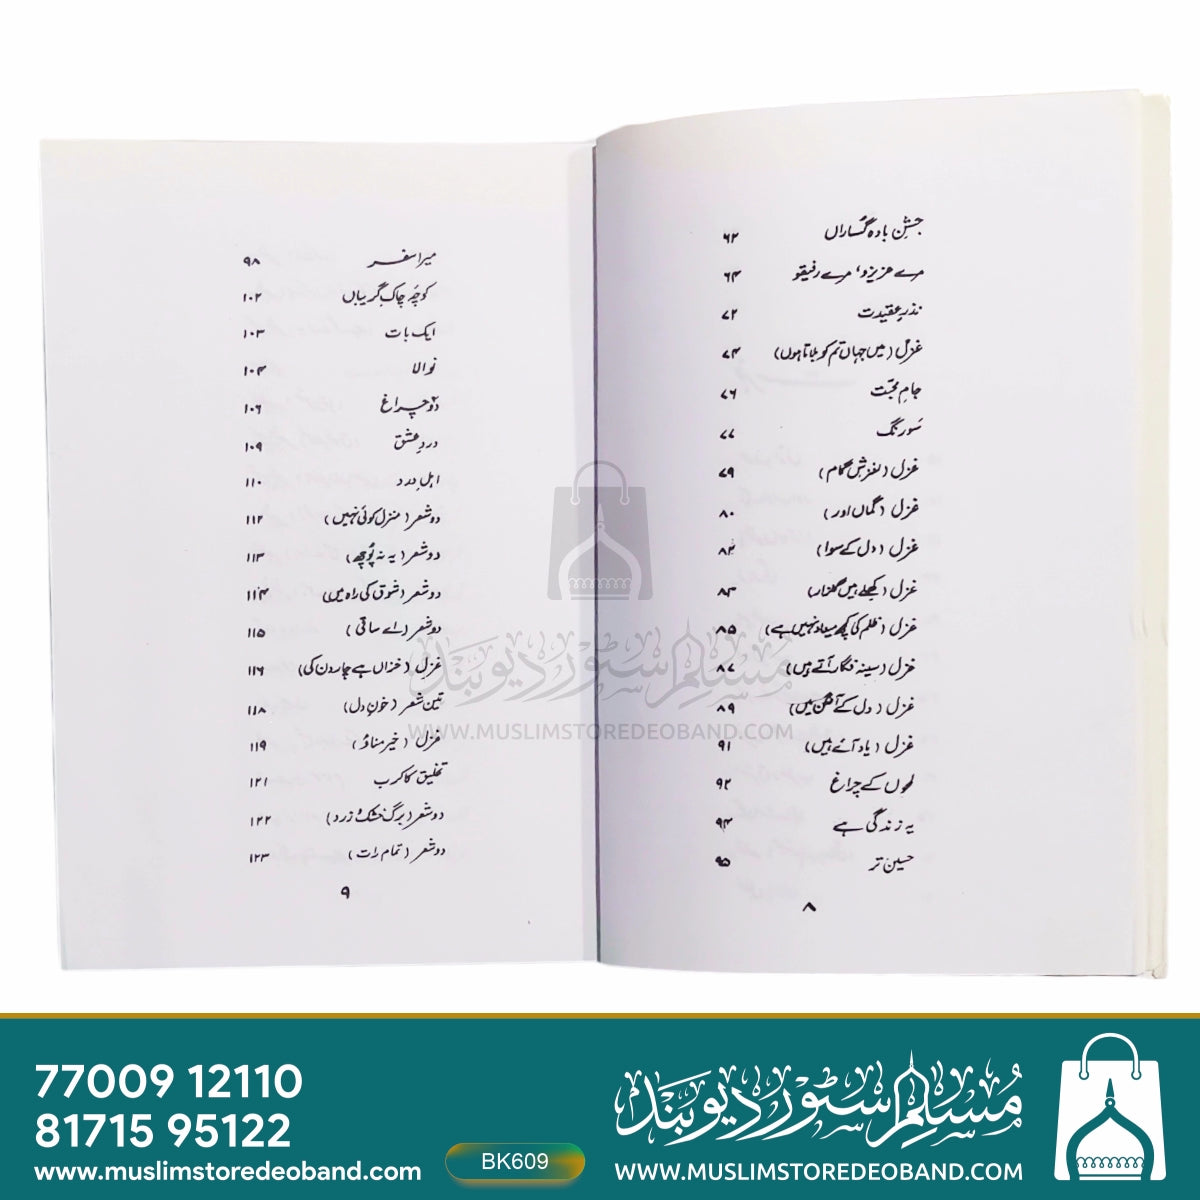 جشنِ بادہ گساراں ۶۲
مرے عزیزو، مرے رفیقو ۶۴
نذرِ عقیدت ۷۲
غزل (میں جہاں تم کو بلاتا ہوں) ۷۴
جامِ محبّت ۷۶
سَو رنگ ۷۷
غزل (لغزشِ گام) ۷۹
غزل (گماں اور) ۸۰
غزل (دل کے سوا) ۸۲
غزل (کھلے ہیں گلنار) ۸۳
غزل (ظلم کی کچھ میعاد نہیں ہے) ۸۵
غزل (سینہ فگار آتے ہیں) ۸۷
غزل (دل کے آنگن میں) ۸۹
غزل (یاد آئے ہیں) ۹۱
لہو کے چراغ ۹۲
یہ زندگی ہے ۹۴
حسین تر ۹۵
۸
میرا سفر ۹۸
کوچۂ چاک گریباں ۱۰۲
ایک بات ۱۰۳
نوالا ۱۰۴
دو چراغ ۱۰۶
دردِ عشق ۱۰۹
اہلِ درد ۱۱۰
دو شعر (منزل کوئی نہیں) ۱۱۲
دو شعر (یہ نہ پُوچھ) ۱۱۳
دو شعر (شوق کی راہ میں) ۱۱۴
دو شعر (اے ساقی) ۱۱۵
غزل (خزاں ہے چار دن کی) ۱۱۶
تین شعر (خونِ دل) ۱۱۸
غزل (خیر مناؤ) ۱۱۹
تخلیق کا کرب ۱۲۱
دو شعر (برگِ خشک و زرد) ۱۲۲
دو شعر (تمام رات) ۱۲۳
۹
مسلم سٹور دیوبند
WWW.MUSLIMSTOREDEOBAND.COM
77009 12110
81715 95122
www.muslimstoredeoband.com
BK609
مسلم سٹور دیوبند
WWW.MUSLIMSTOREDEOBAND.COM